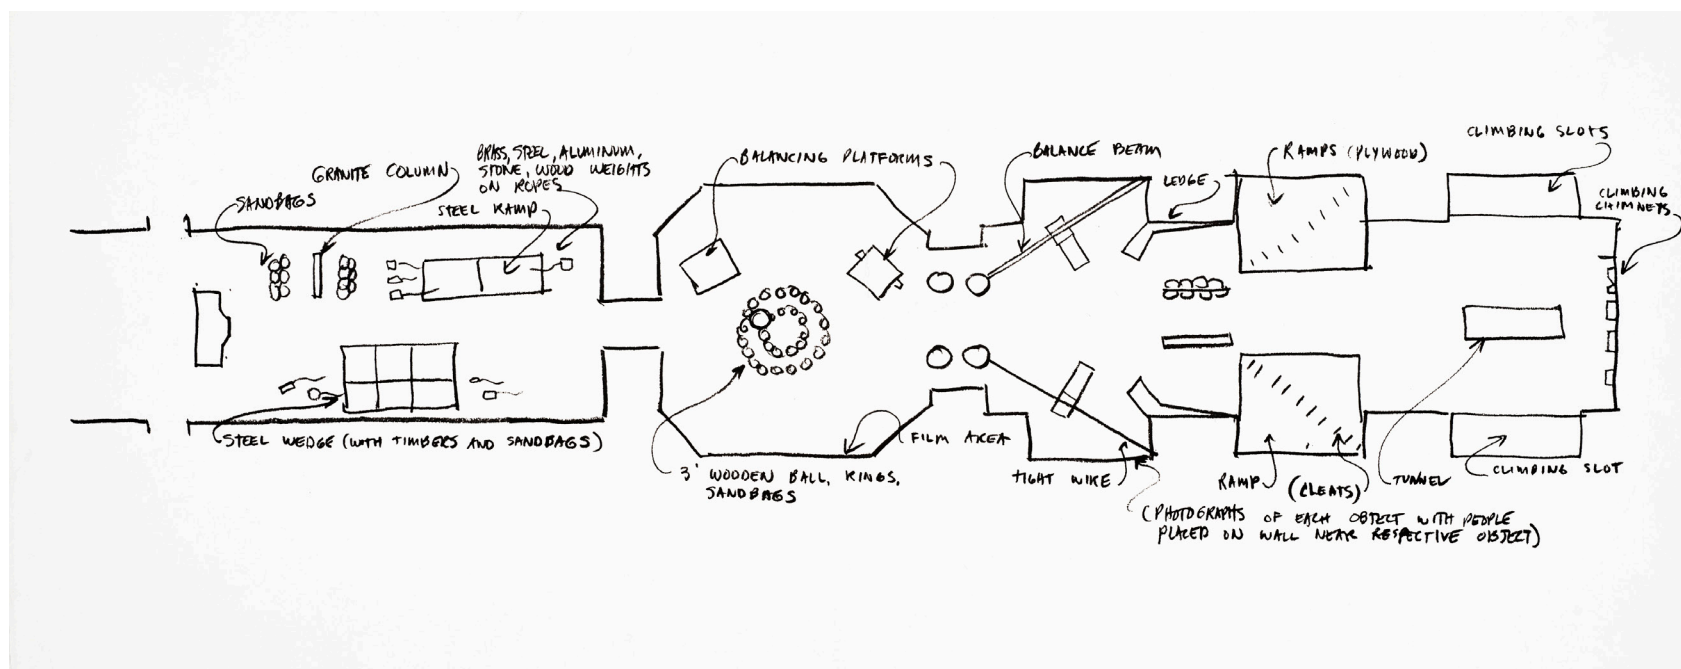 SANDBAGS
GRANITE COLUMN
BRASS, STEEL, ALUMINUM,
STONE, WOOD WEIGHTS
ON ROPES
STEEL RAMP
BALANCING PLATFORMS
BALANCE BEAM
LEDGE
RAMPS (PLYWOOD)
CLIMBING SLOTS
CLIMBING
CHIMNEYS
STEEL WEDGE (WITH TIMBERS AND SANDBAGS)
3' WOODEN BALL, RINGS,
SANDBAGS
FILM AREA
TIGHT WIRE
RAMP
(CLEATS)
TUNNEL
CLIMBING SLOT
(PHOTOGRAPHS OF EACH OBJECT WITH PEOPLE
PLACED ON WALL NEAR RESPECTIVE OBJECT)